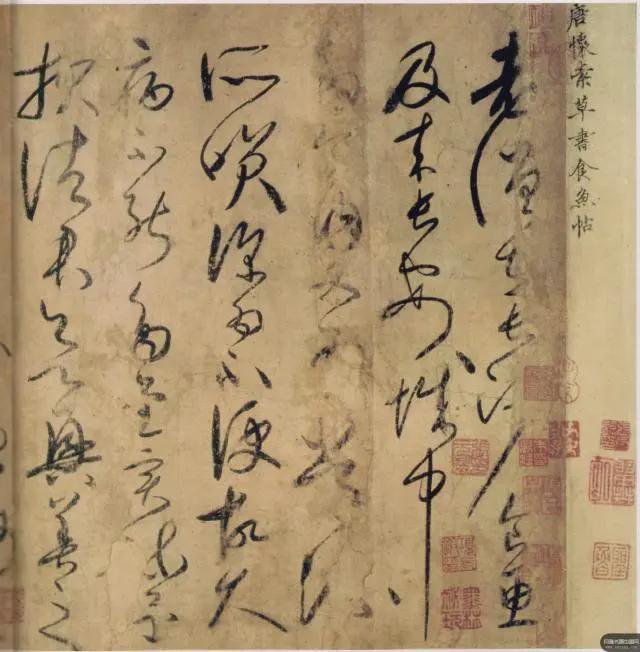 唐懷素草書食魚帖
老僧在長沙食魚
及来長安城中
多食肉又為常流
所笑深為不便故久
病不能多書實疎還
報諸君欲興善之